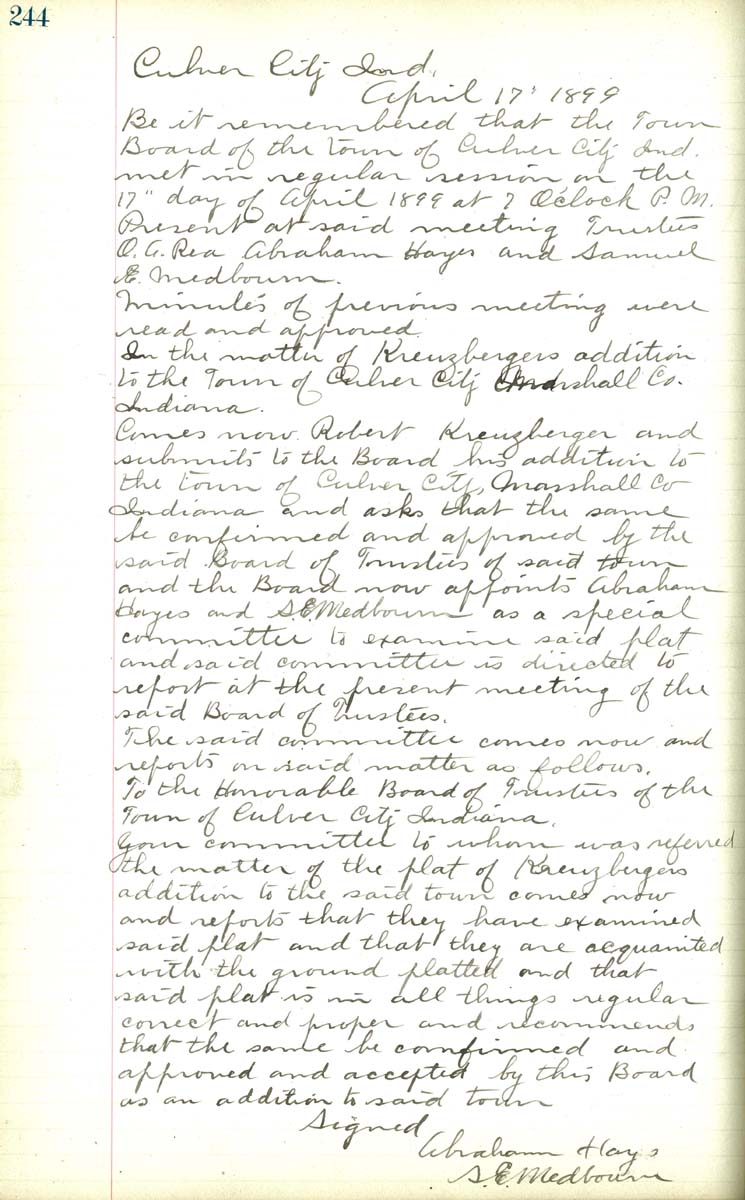 244
Culver City Ind.
April 17" 1899
Be it remembered that the Town
Board of the town of Culver City Ind.
met in regular session on the
17" day of April 1899 at 7 O'clock P. M.
Present at said meeting Trustees
O. A. Rea Abraham Hayes and Samuel
E. Medbourn.
Minutes of previous meeting were
read and approved.
In the matter of Kreuzbergers addition
to the Town of Culver City Marshall Co.
Indiana.
Comes now Robert Kreuzberger and
submits to the Board his addition to
the town of Culver City, Marshall Co
Indiana and asks that the same
be confirmed and approved by the
said Board of Trustees of said town
and the Board now appoints Abraham
Hayes and S.E. Medbourn as a special
committee to examine said plat
and said committee is directed to
report at the present meeting of the
said Board of Trustees.
The said committee comes now and
reports on said matter as follows.
To the Honorable Board of Trustees of the
Town of Culver City Indiana.
Your committee to whom was referred
the matter of the plat of Kreuzbergers
addition to the said town comes now
and reports that they have examined
said plat and that they are acquainted
with the ground platted and that
said plat is in all things regular
correct and proper and recommends
that the same be confirmed and
approved and accepted by this Board
as an addition to said town
Signed
Abraham Hays
S.E. Medbourn